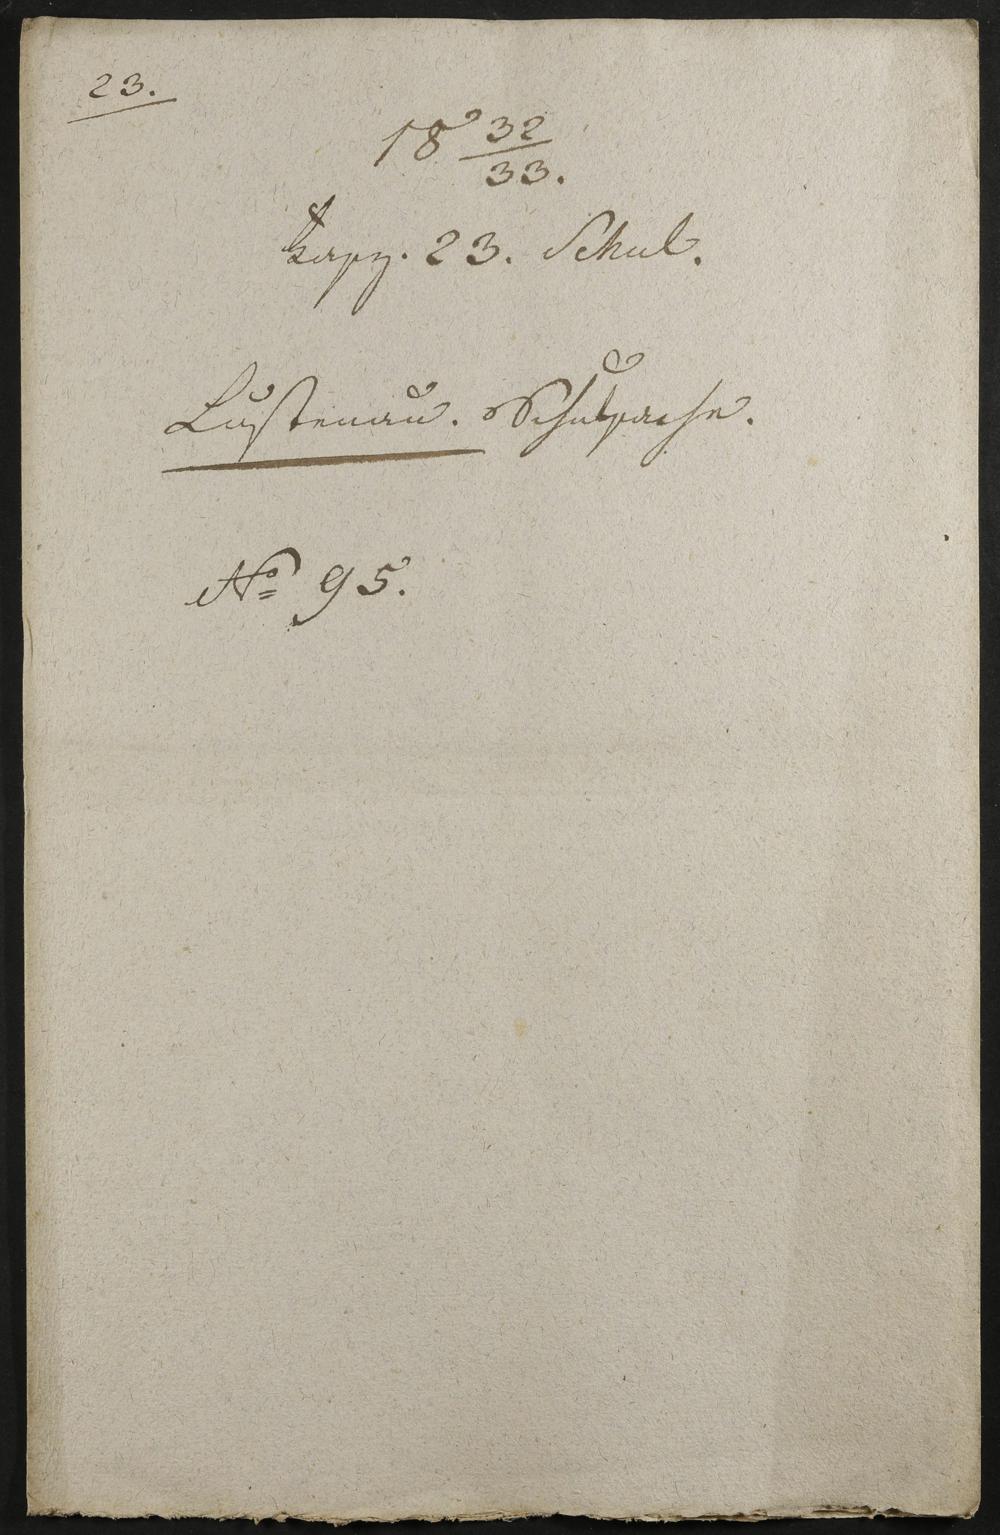 23.
18 32/33.
Kapz. 23. Schul.
Lustenau. Schulsache.
No 95.